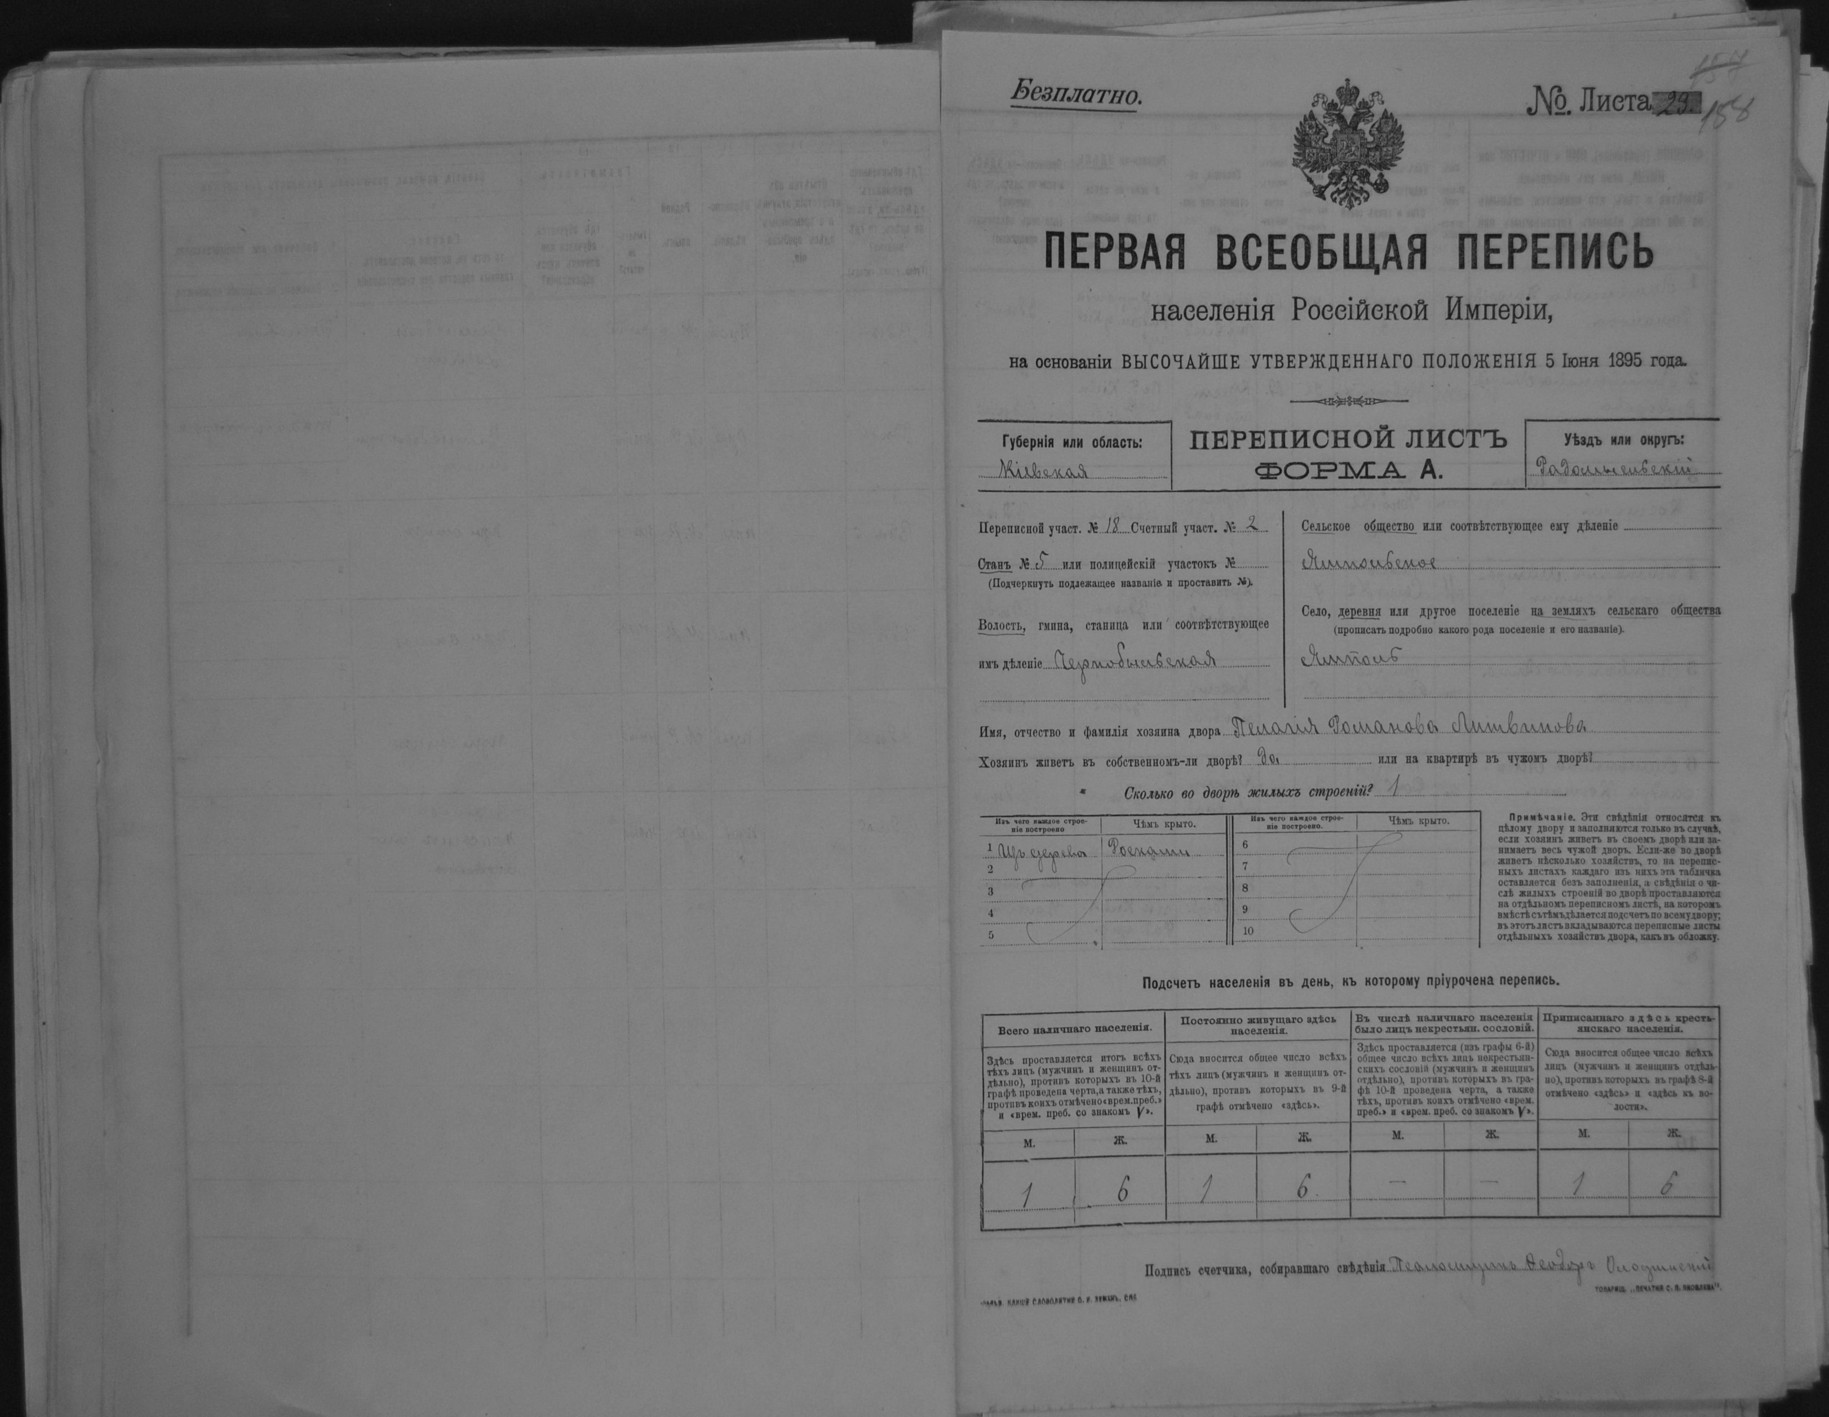 Безплатно.
№. Листа 29.
157
158
ПЕРВАЯ ВСЕОБЩАЯ ПЕРЕПИСЬ
населенія Россійской Имперіи,
на основаніи ВЫСОЧАЙШЕ УТВЕРЖДЕННАГО ПОЛОЖЕНІЯ 5 Іюня 1895 года.
Губернія или область:
Кіевская
ПЕРЕПИСНОЙ ЛИСТЪ
ФОРМА А.
Уѣздъ или округъ:
Радомысльскій
Переписной участ. № 18 Счетный участ. № 2
Станъ № 5 или полицейскій участокъ №
(Подчеркнуть подлежащее названіе и проставить №).
Волость, гмина, станица или соотвѣтствующее
имъ дѣленіе Чернобыльская
Сельское общество или соотвѣтствующее ему дѣленіе
Ямпольское
Село, деревня или другое поселеніе на земляхъ сельскаго общества
(прописать подробно какого рода поселеніе и его названіе).
Ямполь
Имя, отчество и фамилія хозяина двора Пелагія Романова Литвинова
Хозяинъ живетъ въ собственномъ-ли дворѣ? да или на квартирѣ въ чужомъ дворѣ?
Сколько во дворѣ жилыхъ строеній? 1
Изъ чего каждое строе-
ніе построено
Чѣмъ крыто.
Изъ чего каждое строе-
ніе построено.
Чѣмъ крыто.
1 Изъ дерева
2
3
4
5
6
7
8
9
10
Примѣчаніе. Эти свѣдѣнія относятся къ
цѣлому двору и заполняются только въ случаѣ,
если хозяинъ живетъ въ своемъ дворѣ или за-
нимаетъ весь чужой дворъ. Если-же во дворѣ
живетъ нѣсколько хозяйствъ, то на перепис-
ныхъ листахъ каждаго изъ нихъ эта табличка
оставляется безъ заполненія, а свѣдѣнія о чи-
слѣ жилыхъ строеній во дворѣ проставляются
на отдѣльномъ переписномъ листѣ, на которомъ
вмѣстѣ съ тѣмъ дѣлается подсчетъ по всему двору;
въ этотъ листъ вкладываются переписные листы
отдѣльныхъ хозяйствъ двора, какъ въ обложку.
Подсчетъ населенія въ день, къ которому пріурочена перепись.
Всего наличнаго населенія.
Здѣсь проставляется итогъ всѣхъ
тѣхъ лицъ (мужчинъ и женщинъ от-
дѣльно), противъ которыхъ въ 10-й
графѣ проведена черта, а также тѣхъ,
противъ коихъ отмѣчено «врем. преб.»
и «врем. преб. со знакомъ V».
Постоянно живущаго здѣсь
населенія.
Сюда вносится общее число всѣхъ
тѣхъ лицъ (мужчинъ и женщинъ от-
дѣльно), противъ которыхъ въ 9-й
графѣ отмѣчено «здѣсь».
Въ числѣ наличнаго населенія
было лицъ некрестьян. сословій.
Здѣсь проставляется (изъ графы 6-й)
общее число всѣхъ лицъ некрестьян-
скихъ сословій (мужчинъ и женщинъ
отдѣльно), противъ которыхъ въ гра-
фѣ 10-й проведена черта, а также
тѣхъ, противъ коихъ отмѣчено «врем.
преб.» и «врем. преб. со знакомъ V».
Приписаннаго здѣсь кресть-
янскаго населенія.
Сюда вносится общее число всѣхъ
лицъ (мужчинъ и женщинъ отдѣль-
но), противъ которыхъ въ графѣ 8-й
отмѣчено «здѣсь» и «здѣсь къ во-
лости».
М. Ж. М. Ж. М. Ж. М. Ж.
1 6 1 6 — — 1 6
Подпись счетчика, собиравшаго свѣдѣнія Псаломщикъ Ѳеодоръ